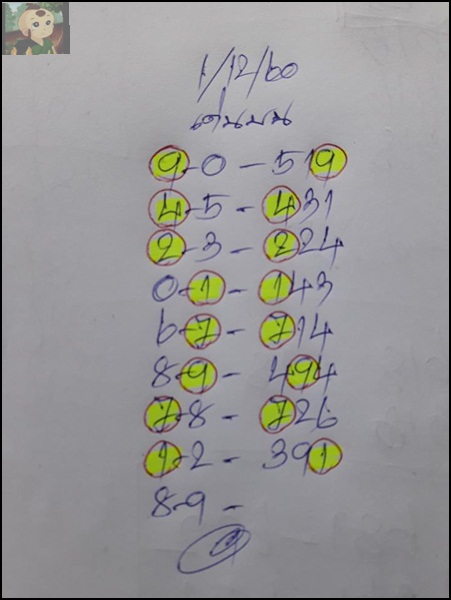 1/12/60
เด่นบน
9-0-519
4-5-431
2-3-224
0-1-143
6-7-714
8-9-494
7-8-726
1-2-391
8-9-